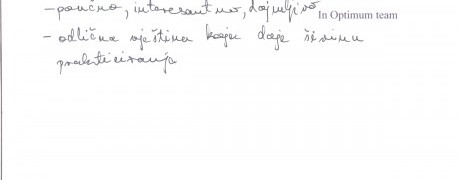 - poučno, interesantno, dojmljivo
In Optimum team
- odlična vještina koju daje širinu
prakticiranja